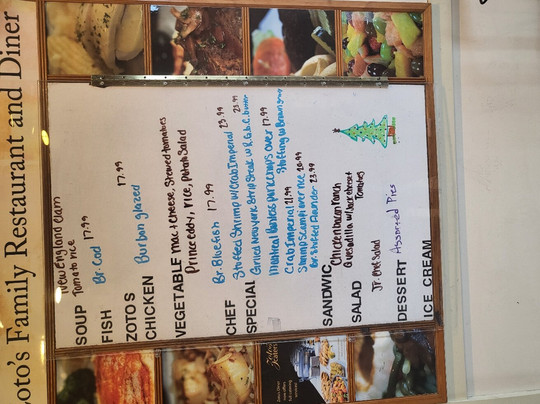 oto's Family Restaurant and Diner
SOUP New England Clam
Tomato rice
FISH Br. Cod 17.99
ZOTOS
CHICKEN Burbon glazed 17.99
VEGETABLE Mac + Cheese, Stewed tomatoes
Prince eddy, rice, Potato Salad
Br. Bluefish 17.99
CHEF Stuffed Shrimp w/Crab Imperial 23.99
SPECIAL Grilled New york Strip Steak w R.G.b.C. butter 23.99
Boneless Pork chops over 17.99
Stuffing w Brown gravy
Crab Imperial 21.99
Shrimp Scampi over rice 20.99
Br. Stuffed Flounder 23.99
SANDWIC Chicken bacon Ranch
Quesadilla w/ Jack cheese +
Tomatoes
SALAD Jr. Chef Salad
DESSERT Assorted Pies
ICE CREAM